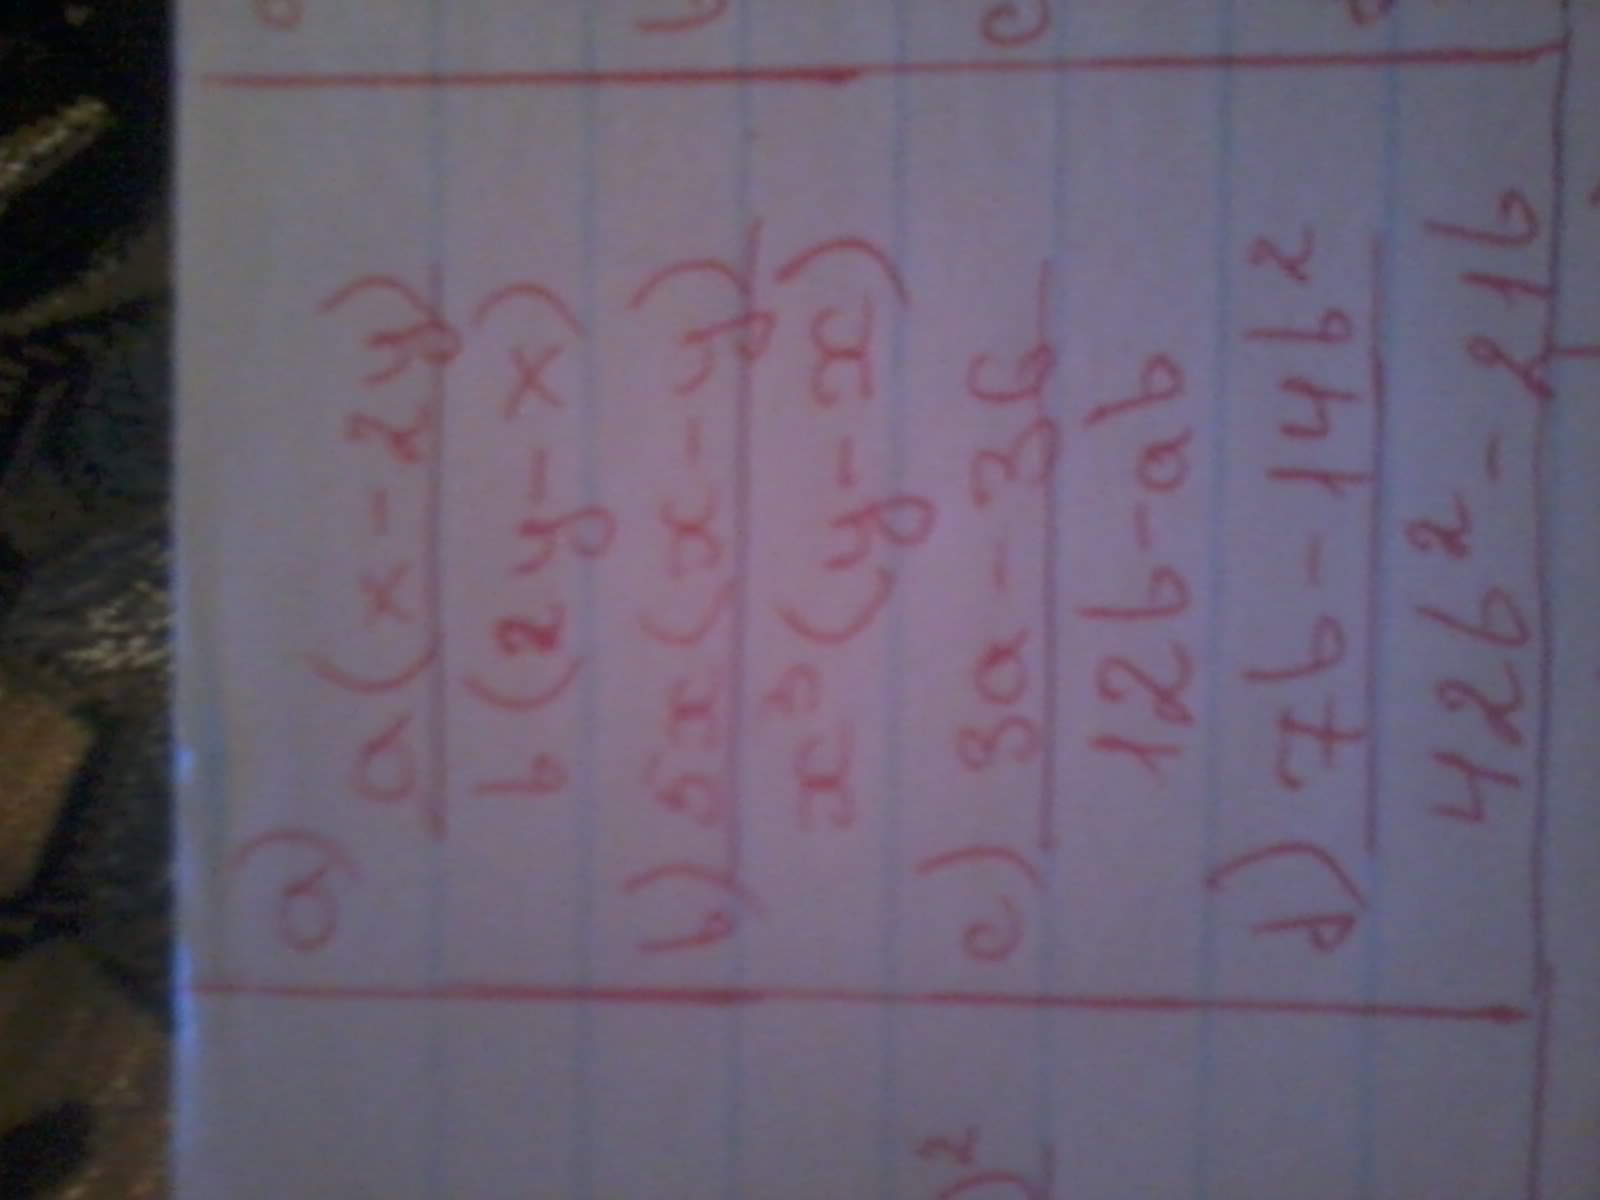 a)
a(x-2y)
b(2y-x)
b) 5x(x-y)
x³(y-x)
c) 3a-36
12b-ab
d) 7b-14b²
42b²-21b